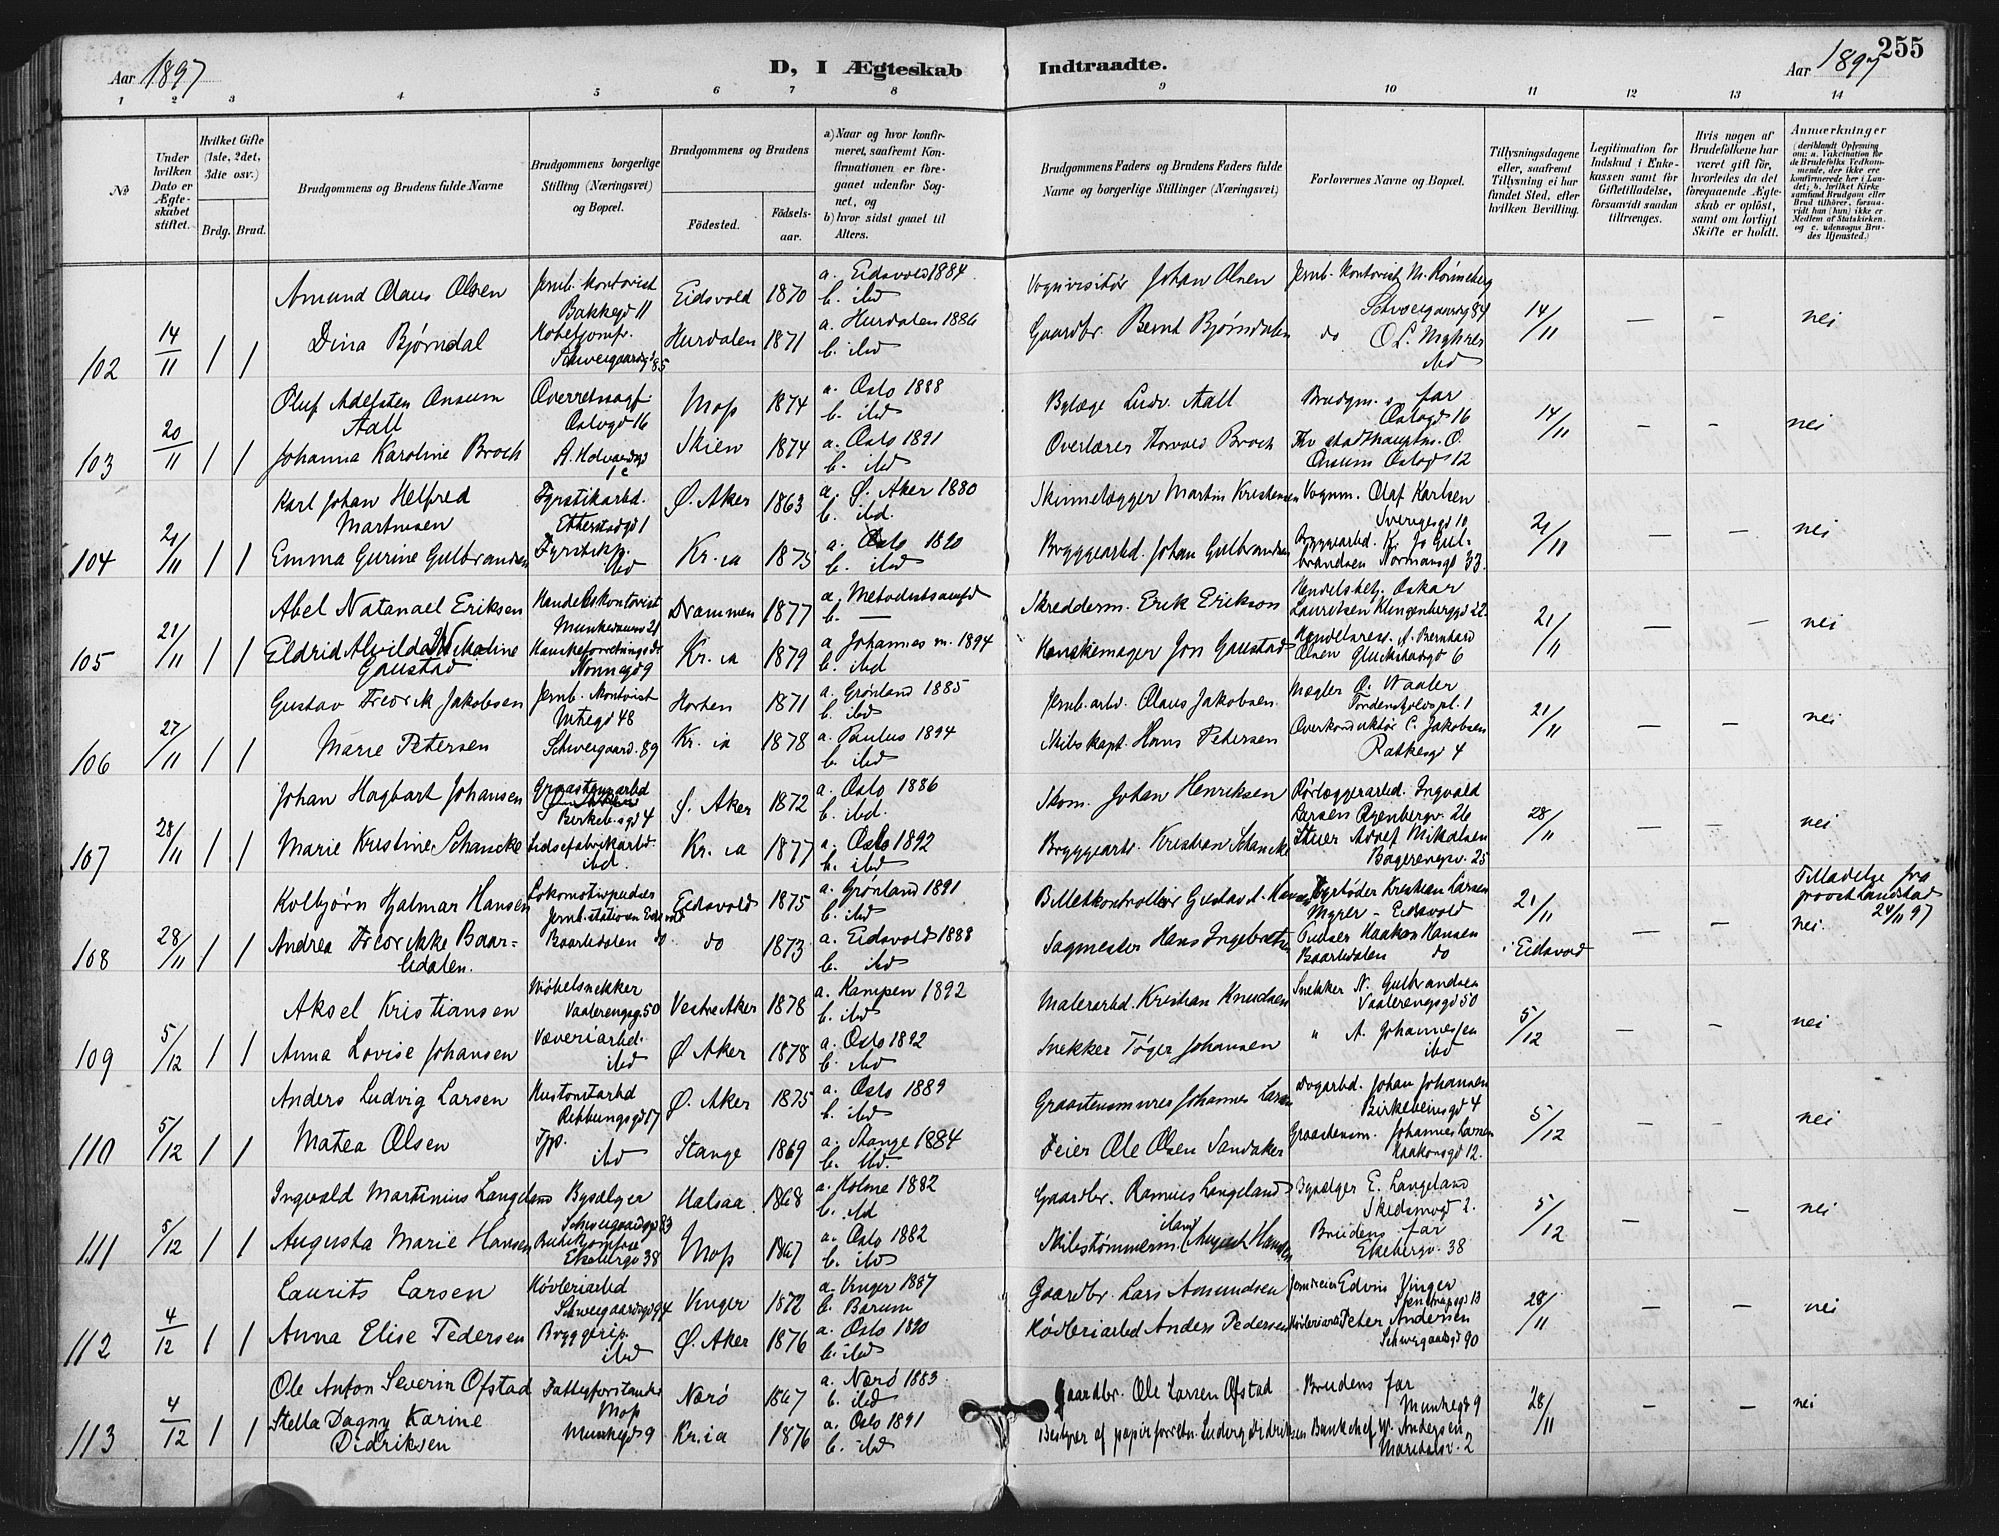 Aar 1897
D, I Ægteskab Indtraadte.
Aar 1897
255
1 2 3 4 5 6 7 8 9 10 11 12 13 14
No
Under hvilken Dato er Ægteskabet stiftet.
Hvilket Gifte (1ste, 2det, 3die osv.)
Brdg. Brud.
Brudgommens og Brudens fulde Navne
Brudgommens borgerlige Stilling (Næringsvei) og Bopæl.
Brudgommens og Brudens
Fødested.
Fødselsaar.
a) Naar og hvor konfirmeret, saafremt Konfirmationen er foregaaet udenfor Sognet, og
b) hvor sidst gaaet til Alters.
Brudgommens Faders og Brudens Faders fulde Navne og borgerlige Stillinger (Næringsvei)
Forlovernes Navne og Bopæl.
Tillysningsdagene eller, saafremt Tillysning ei har fundet Sted, efter hvilken Bevilling.
Legitimation for Indskud i Enkekassen samt for Giftetilladelse, forsaavidt saadan tiltrænges.
Hvis nogen af Brudefolkene har været gift før, hvorledes da det foregaaende Ægteskab er opløst, samt om lovligt Skifte er holdt.
Anmærkninger (deriblandt Oplysning om: a. Vakcination for de Brudefolks Vedkommende, der ikke ere konfirmerede her i Landet; b. hvilket Kirkesamfund Brudgom eller Brud tilhører, forsaavidt han (hun) ikke er Medlem af Statskirken, og c. udensogns Brudes Hjemsted.)
102 14/11 1 1
Amund Olaus Olsen Jernb. Kontorist Bakkegd 11 Eidsvold 1870 a. Eidsvold 1884 b. ibd
Vognvisitør Johan Olsen Jernb. Kontorist M. Rønneberg Schweigaardsg 84 14/11 — — nei
Dina Bjørndal Schweigaardsgd 85 Hurdalen 1871 a. Hurdalen 1886 b. ibd
Gaardbr. Bernt Bjørndalen do O. L. Myhrer ibd
103 20/11 1 1
Oluf Adelsten Onsum Aall Overretssagf. Oslogd 16 Moss 1874 a. Oslo 1888 b. ibd
Bylæge Ludv. Aall Brudgm.s far Oslogd 16 14/11 — — nei
Johanna Karoline Broch Skien 1874 a. Oslo 1891 b. ibd
Overlærer Thorvald Broch Onsum Oslogd 12
104 21/11 1 1
Karl Johan Helfred Martinsen Fyrstikarbd. Etterstadgd 1 Ø. Aker 1863 a. Ø. Aker 1880 b. ibd.
Skinnelægger Martin Kristensen Vognm. Olaf Karlsen Sverigesgd 10 21/11 — — nei
Emma Gurine Gulbrandsen Fyrstikp. ibd Kr.ia 1875 a. Oslo 1890 b. ibd
Byggearbd. Johan Gulbrandsen Byggearbd. K. Jo Gulbrandsen Normansgd 33
105 21/11 1 1
Abel Natanael Eriksen Handelskontorist Munkedamsv 21 Drammen 1877 a. Metodistsamfd b. —
Skredderm. Erik Erikson Handelsbetj. Oskar Lauritsen Klingenberggd 22 21/11 — — nei
Eldrid Alvilda Nikoline Gaustad Hanskeforretningsdr Nonnegd 9 Kr.ia 1879 a. Johannes m. 1894 b. ibd
Hanskemager Jon Gaustad Handelsreis. A. Bernhard Olsen Glückstadsgd 6
106 27/11 1 1
Gustav Fredrik Jakobsen Jernb. Kontorist Urtegd 48 Horten 1871 a. Grønland 1885 b. ibd
Jernb. arbd. Olaus Jakobsen Mægler O. Waaler Tordenskjoldspl. 1 21/11 — — nei
Marie Petersen Schweigaard. 89 Kr. ia 1878 a. Paulus 1894 b. ibd
Skibskapt. Hans Petersen Overkonduktør C. Jakobsen Ratkesgd 4
107 28/11 1 1
Johan Hagbart Johansen Graastensarbd Birkeb.sgd 4 Ø. Aker 1872 a. Oslo 1886 b. ibd.
Skom. Johan Henriksen Rørlæggerarbd. Ingvald Larsen Ryenbergv. 26 28/11 — — nei
Marie Kristine Schancke ibd. Kr. ia 1877 a. Oslo 1892 b. ibd
Byggearb. Kristian Schancke Adolf Mikalsen Bagerengsv. 25
108 28/11 1 1
Kolbjørn Hjalmar Hansen Lokomotivpudser Jernb. stationen Eidsvold Eidsvold 1875 a. Grønland 1891 b. ibd
Billetkontrollør Gustav Hansen Fyrbøder Kristian Larsen Myrer - Eidsvold 21/11 i Eidsvold — — Tilladelse fra provst Landstad 24/11 97 nei.
Andrea Fredrikke Baarlidalen. Baarlidalen do do 1873 a. Eidsvold 1888 b. ibd
Sagmester Hans Ingebretsen Pudser Haakon Hansen Baarlidalen do
109 5/12 1 1
Aksel Kristiansen Møbelsnekker Vaalerengsg. 50 Vestre Aker 1878 a. Kampen 1892 b. ibd
Malerarbd. Kristian Knudsen Snekker N. Gulbrandsen Vaalerengsgd 50 5/12 — — nei
Anna Lovise Johansen Væveriarbd. ibd Ø. Aker 1878 a. Oslo 1892 b. ibd
Snekker Tøger Johansen " A. Johannessen ibd
110 5/12 1 1
Anders Ludvig Larsen Ø. Aker 1875 a. Oslo 1889 b. ibd
Graastensmurer Johannes Larsen Dagarbd. Johan Johansen Birkebeinsgd 4 5/12 — — nei
Matea Olsen Tjp. ibd Stange 1869 a. Stange 1884 b. ibd.
Feier Ole Olsen Sandaker Graastensm. Johannes Larsen Haakonsgd 12.
111 5/12 1 1
Ingvald Martinius Langeland Bysælger Schweigaardsgd 83 1868 a. Holme 1882 b. ibd
Gaardbr. Rasmus Langeland Bysælger E. Langeland Skedsmogd 2. 5/12 — — nei
Augusta Marie Hansen Butikjomfru Ekebergv 38 Moss 1867 a. Oslo 1882 b. ibd
Skibstømmerm. August Hansen Brudens far Ekebergv. 38
112 4/12 1 1
Laurits Larsen Høvleriarbd Schweigaardsgd 94 Vinger 1872 a. Vinger 1887 b. Bærum
Gaardbr. Lars Amundsen Edvin Vinger 13 28/11 — — nei
Anna Elise Pedersen Bryggeripi. ibd Ø. Aker 1876 a. Oslo 1890 b. ibd
Høvleriarbd Anders Pedersen Høvleriarbd Peter Andersen Schweigaardsgd 90
113 4/12 1 1
Ole Anton Severin Ofstad Fattigforstander Moss Nærø 1867 a. Nærø 1883 b. ibd
Gaardbr. Ole Larsen Ofstad Brudens far Munkegd 9 28/11 — — nei
Stella Dagny Karine Didriksen Munkegd 9 Kr.ia 1876 a. Oslo 1891 b. ibd
Bestyrer af papirforretn. Ludvig Didriksen Bankchef W. Andersen Maridalsv. 2